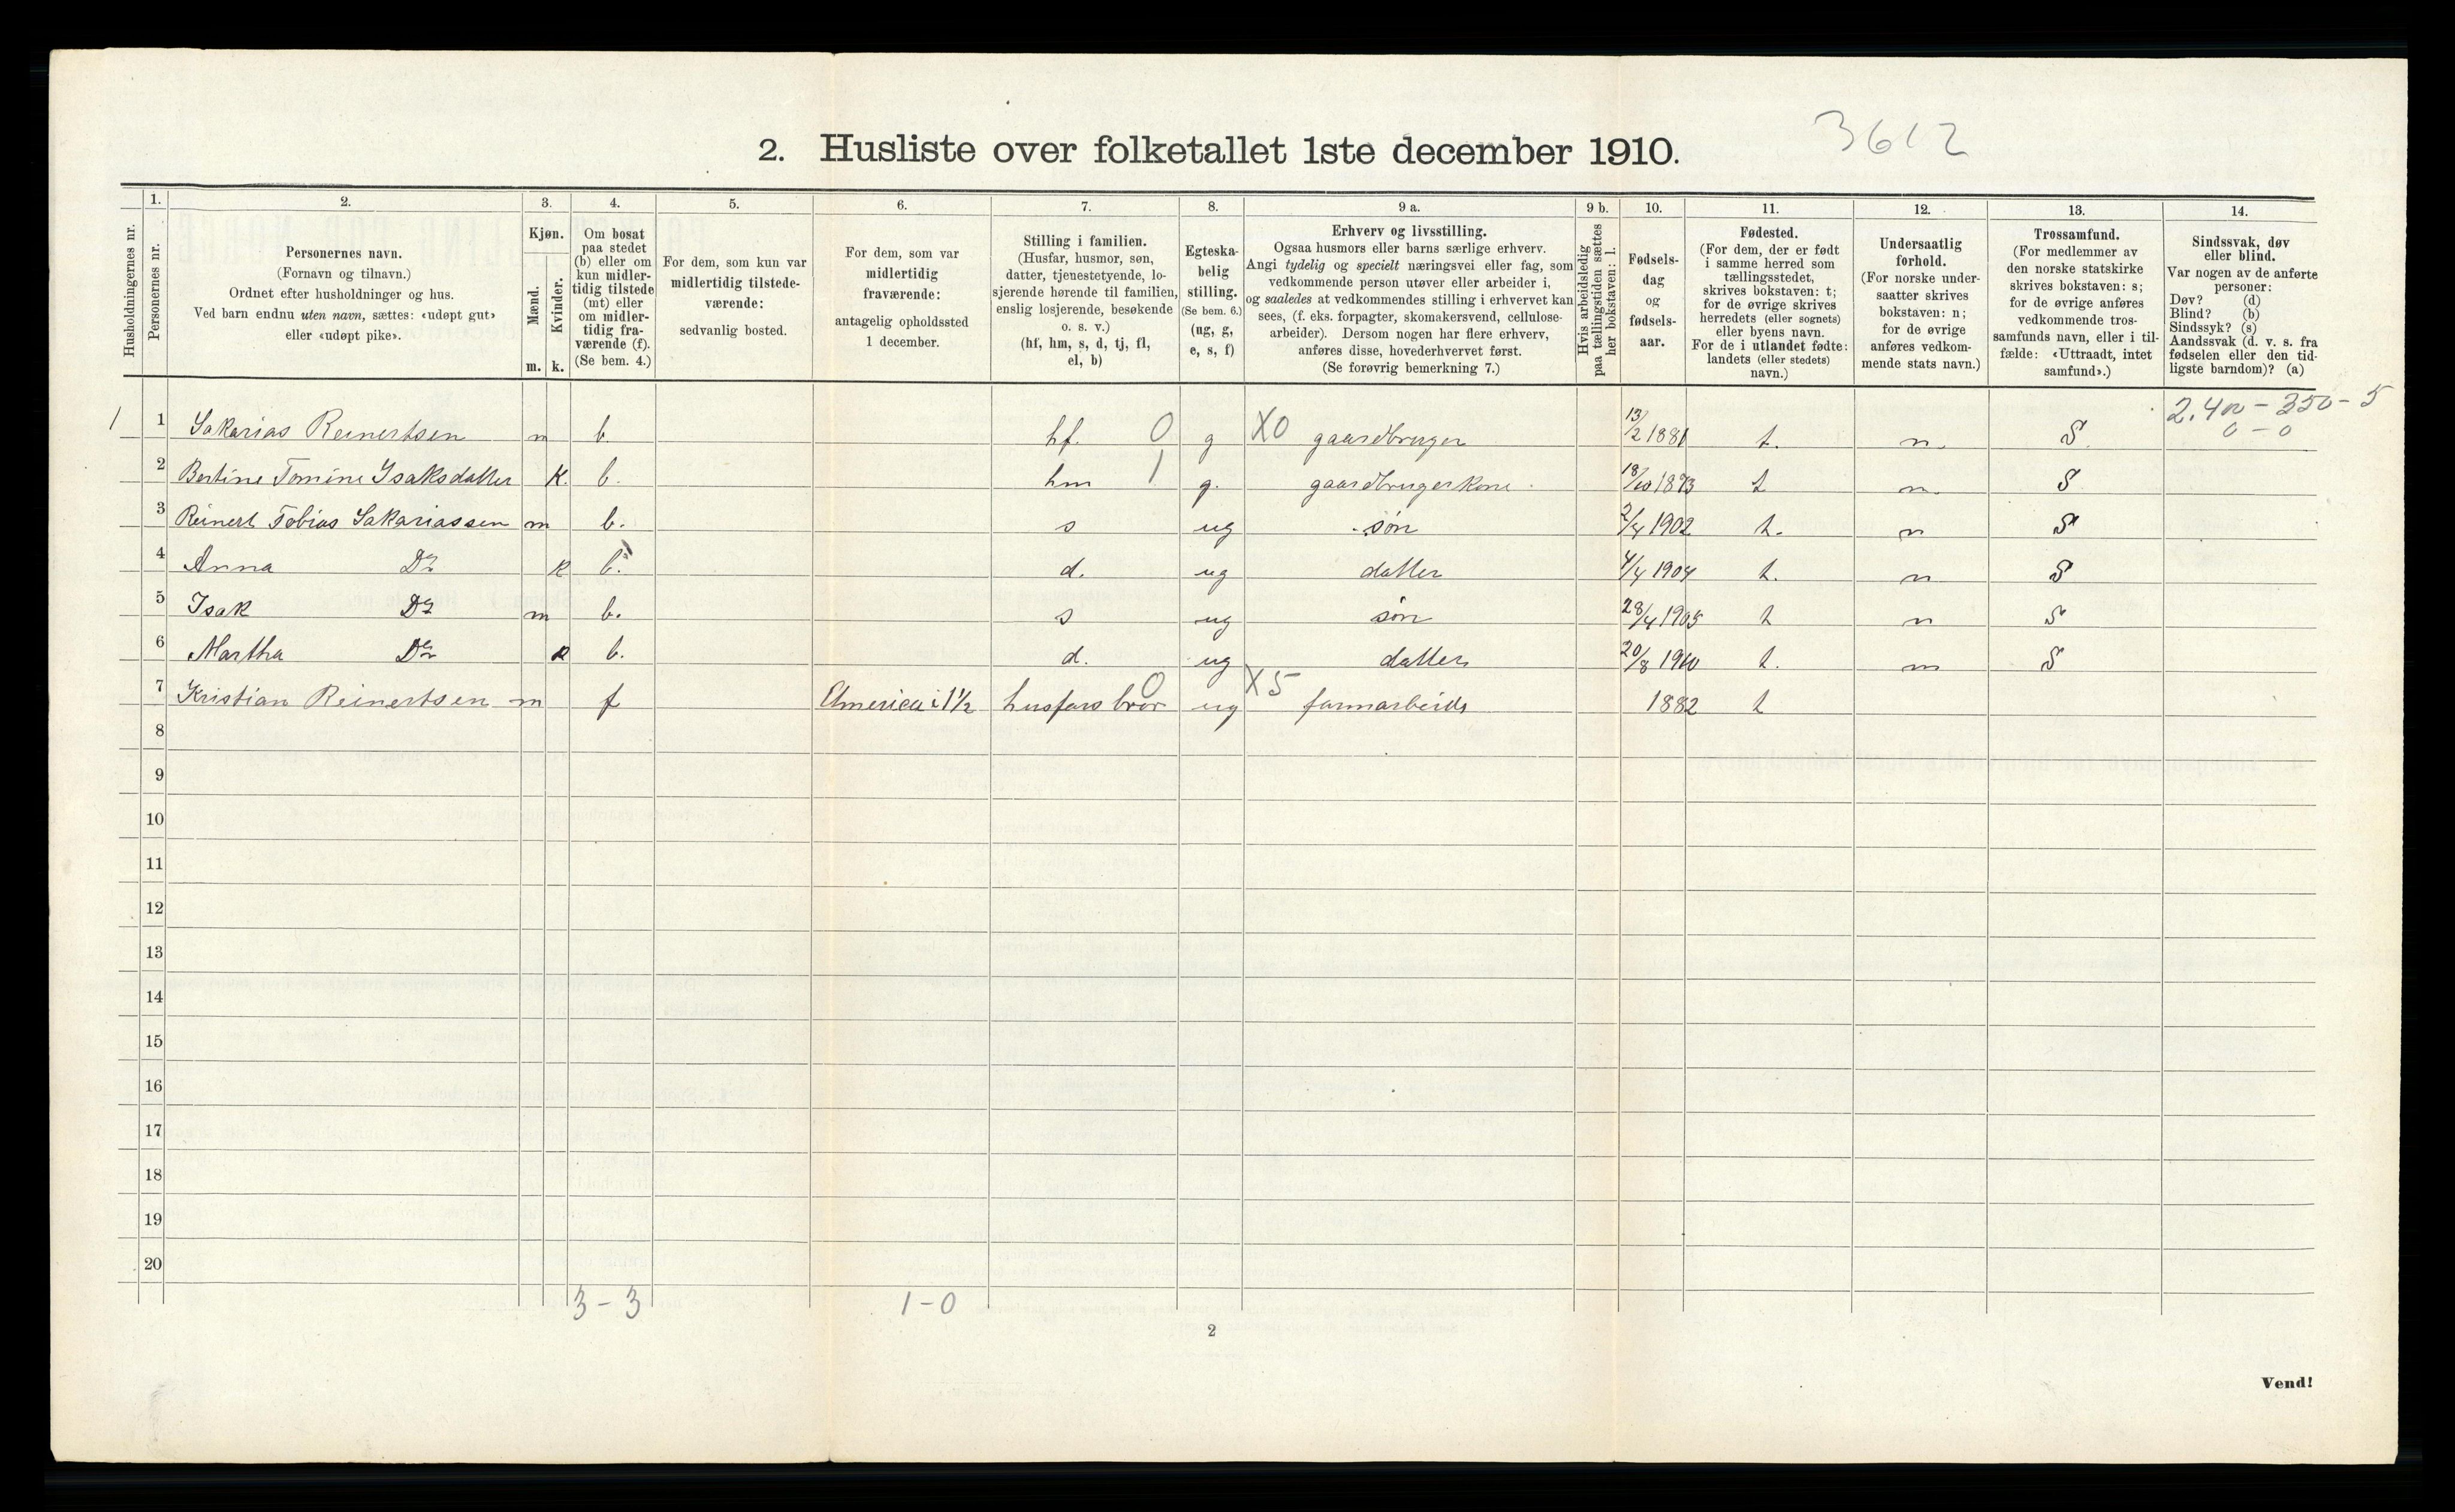 3612
2. Husliste over folketallet 1ste december 1910.
Husholdningernes nr.
1. Personernes nr.
2. Personernes navn. (Fornavn og tilnavn.) Ordnet efter husholdninger og hus. Ved barn endnu uten navn, sættes: «udøpt gut» eller «udøpt pike».
3. Kjøn. Mænd. m. Kvinder. k.
4. Om bosat paa stedet (b) eller om kun midlertidig tilstede (mt) eller om midlertidig fraværende (f). (Se bem. 4.)
5. For dem, som kun var midlertidig tilstedeværende: sedvanlig bosted.
6. For dem, som var midlertidig fraværende: antagelig opholdssted 1 december.
7. Stilling i familien. (Husfar, husmor, søn, datter, tjenestetyende, losjerende hørende til familien, enslig losjerende, besøkende o. s. v.) (hf, hm, s, d, tj, fl, el, b)
8. Egteskabelig stilling. (Se bem. 6.) (ug, g, e, s, f)
9 a. Erhverv og livsstilling. Ogsaa husmors eller barns særlige erhverv. Angi tydelig og specielt næringsvei eller fag, som vedkommende person utøver eller arbeider i, og saaledes at vedkommendes stilling i erhvervet kan sees, (f. eks. forpagter, skomakersvend, cellulosearbeider). Dersom nogen har flere erhverv, anføres disse, hovederhvervet først. (Se forøvrig bemerkning 7.)
9 b. Hvis arbeidsledig paa tællingstiden sættes her bokstaven: l.
10. Fødselsdag og fødselsaar.
11. Fødested. (For dem, der er født i samme herred som tællingsstedet, skrives bokstaven: t; for de øvrige skrives herredets (eller sognets) eller byens navn. For de i utlandet fødte: landets (eller stedets) navn.)
12. Undersaatlig forhold. (For norske undersaatter skrives bokstaven: n; for de øvrige anføres vedkommende stats navn.)
13. Trossamfund. (For medlemmer av den norske statskirke skrives bokstaven: s; for de øvrige anføres vedkommende trossamfunds navn, eller i tilfælde: «Uttraadt, intet samfund».)
14. Sindssvak, døv eller blind. Var nogen av de anførte personer: Døv? (d) Blind? (b) Sindssyk? (s) Aandssvak (d. v. s. fra fødselen eller den tidligste barndom)? (a)
2.400 - 350 - 5
0 - 0
1 1 Sakarias Reinertsen m b. hf. 0 g X0 gaardbruger 13/2 1881 t. n. S.
2 Bertine Tomine Isaksdatter K. b. hm 1 g. gaardbrugerkone. t n. S
3 Reinert Tobias Sakariassen m b. s ug søn 2/4 1902 t. n S
4 Anna Do k b. d. ug datter 4/4 1904 t. n S
5 Isak Do m b. s ug søn 28/4 1905 t n S
6 Martha Do k b. d. ug datter 20/8 1910 t. n S
7 Kristian Reinertsen m f America i 1½ husfars bror 0 ug X5 farmarbeide 1882 t
8
9
10
11
12
13
14
15
16
17
18
19
20
3 - 3 1 - 0
2
Vend!